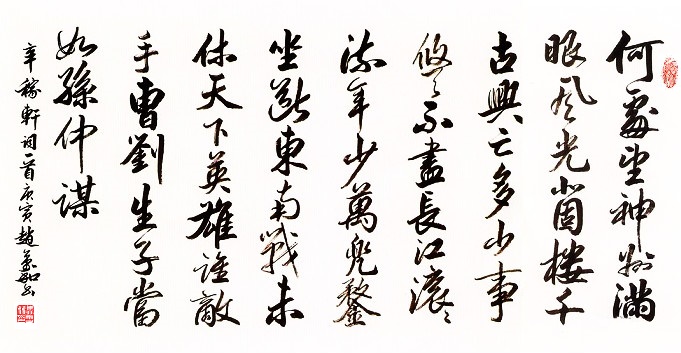 何處望神州滿
眼風光北固樓千
古興亡多少事
悠々不盡長江滾々
流年少萬兜鍪
坐斷東南戰未
休天下英雄誰敵
手曹劉生子當
如孫仲謀
辛稼軒詞一首庚寅趙書